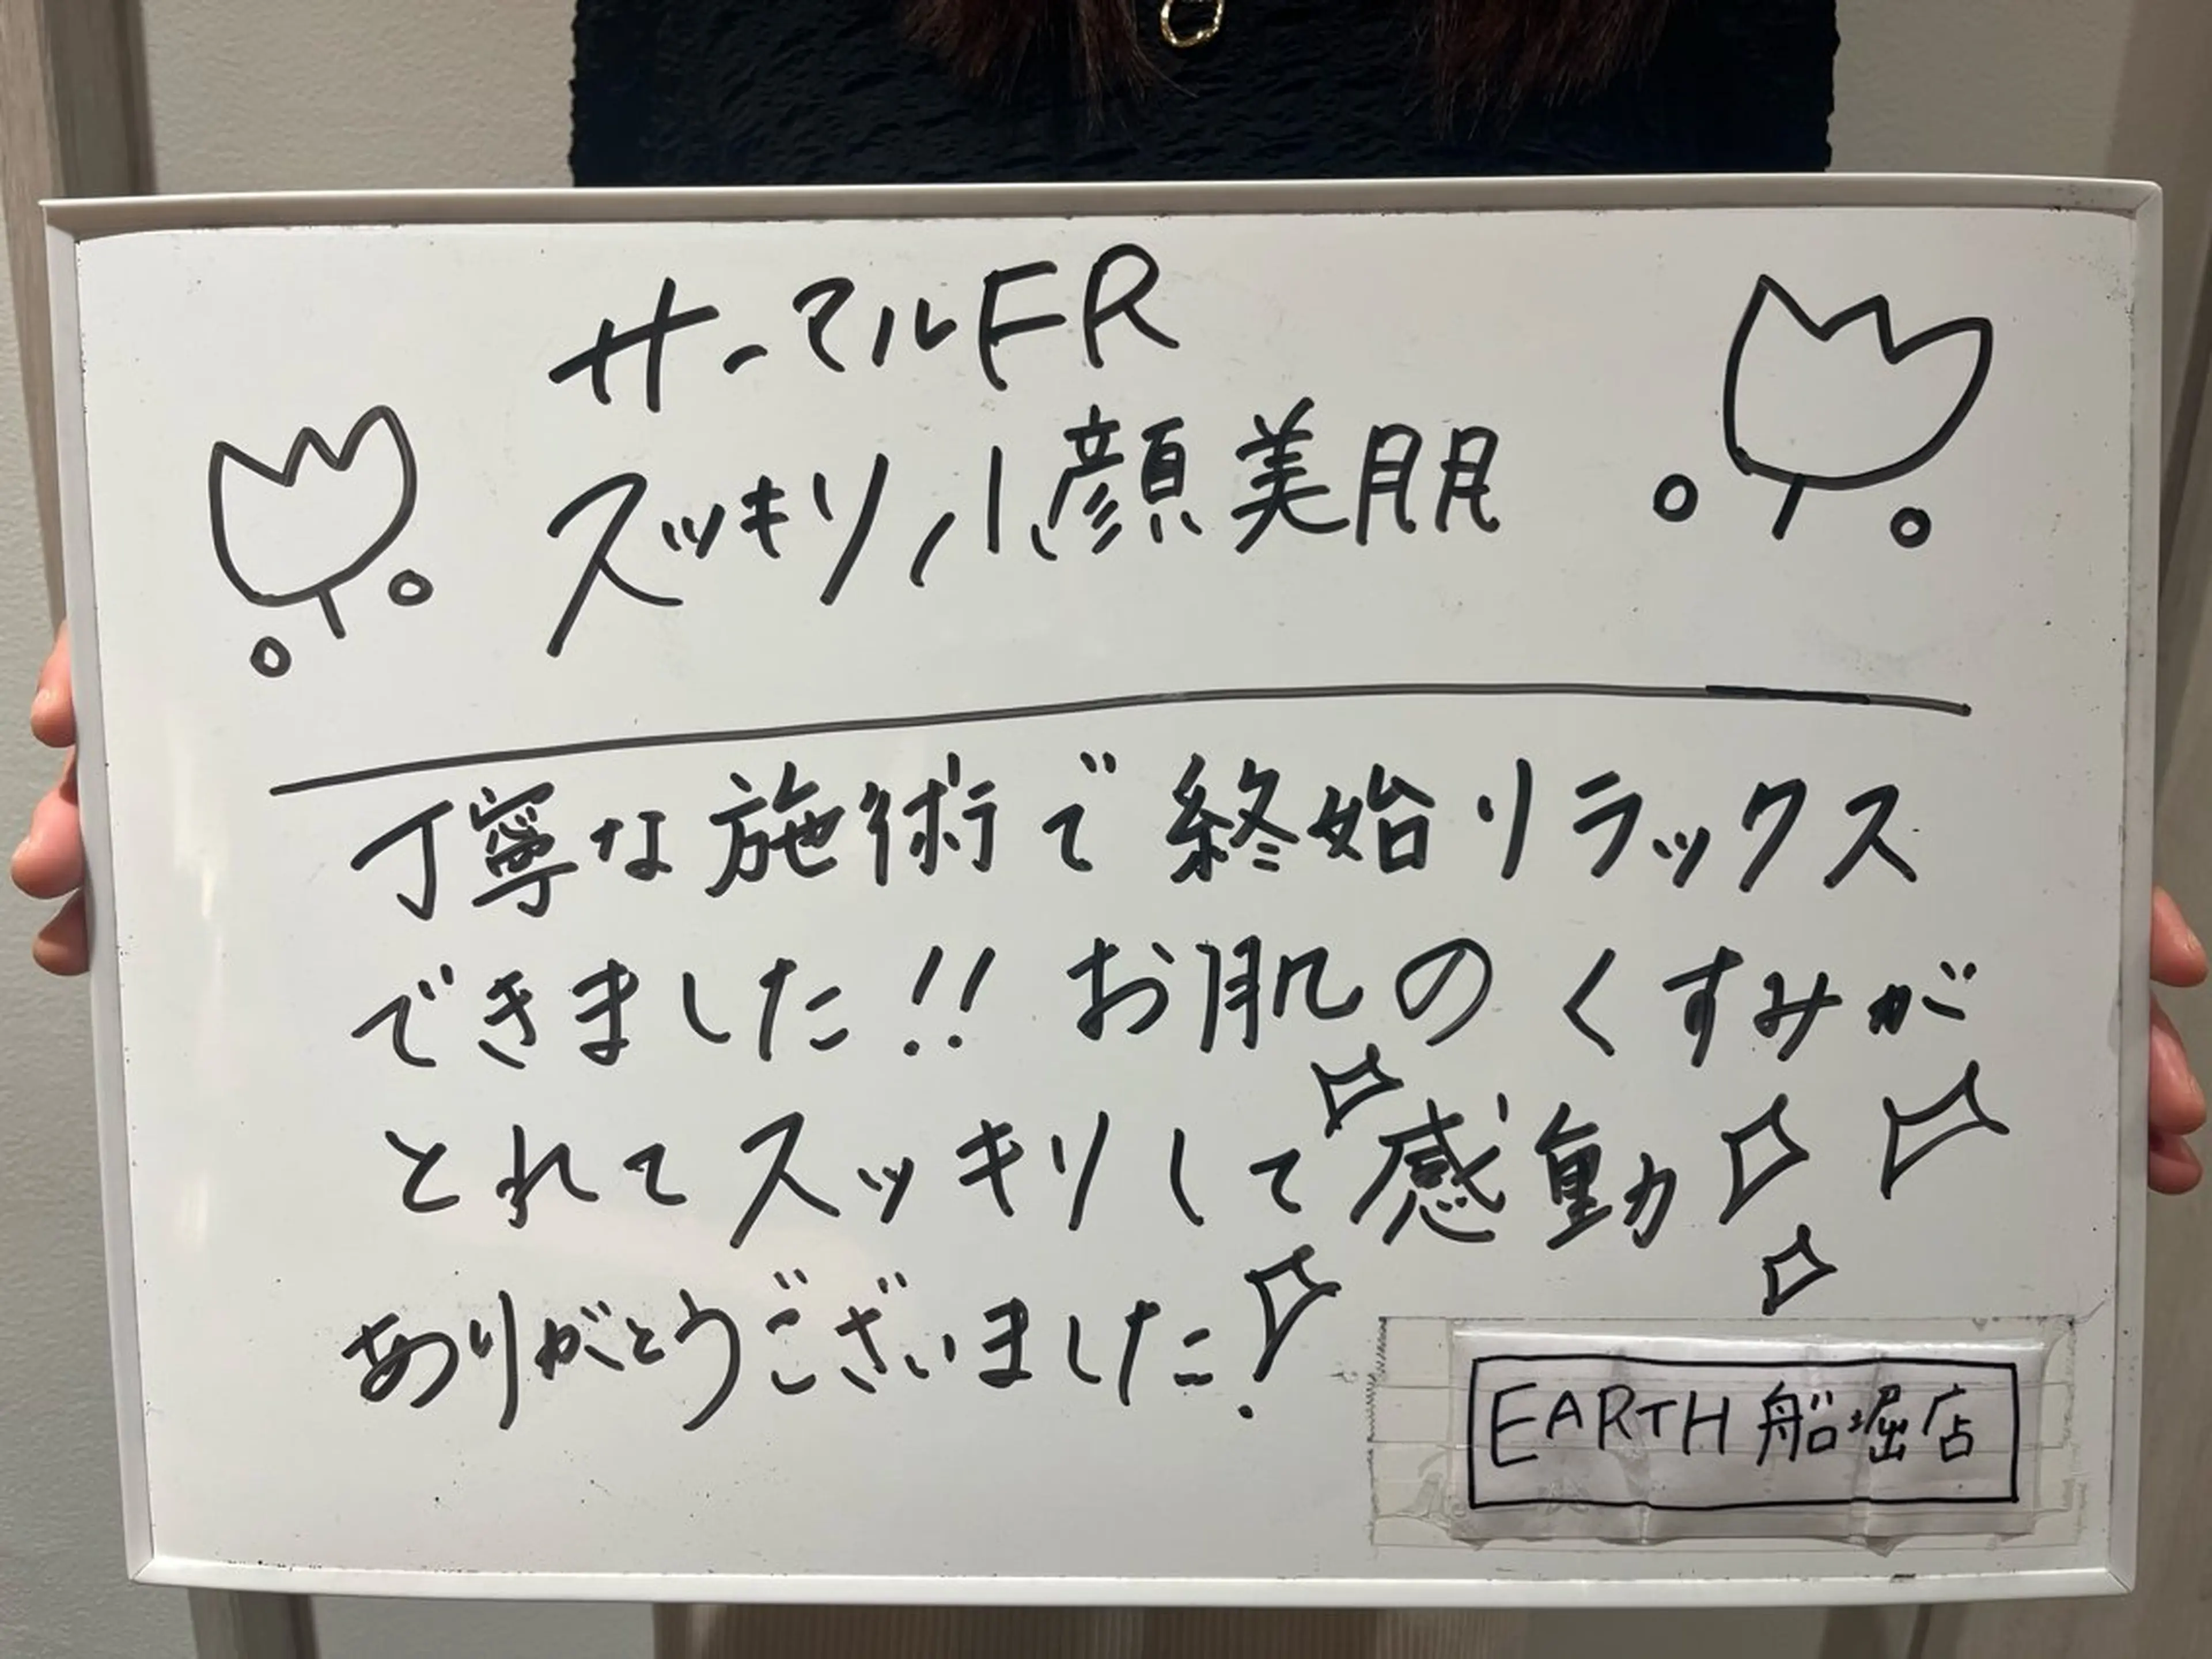 サーマルFR
スッキリ小顔美肌
丁寧な施術で終始リラックス
できました!! お肌のくすみが
とれてスッキリして感動
ありがとうございました!
EARTH 船堀店